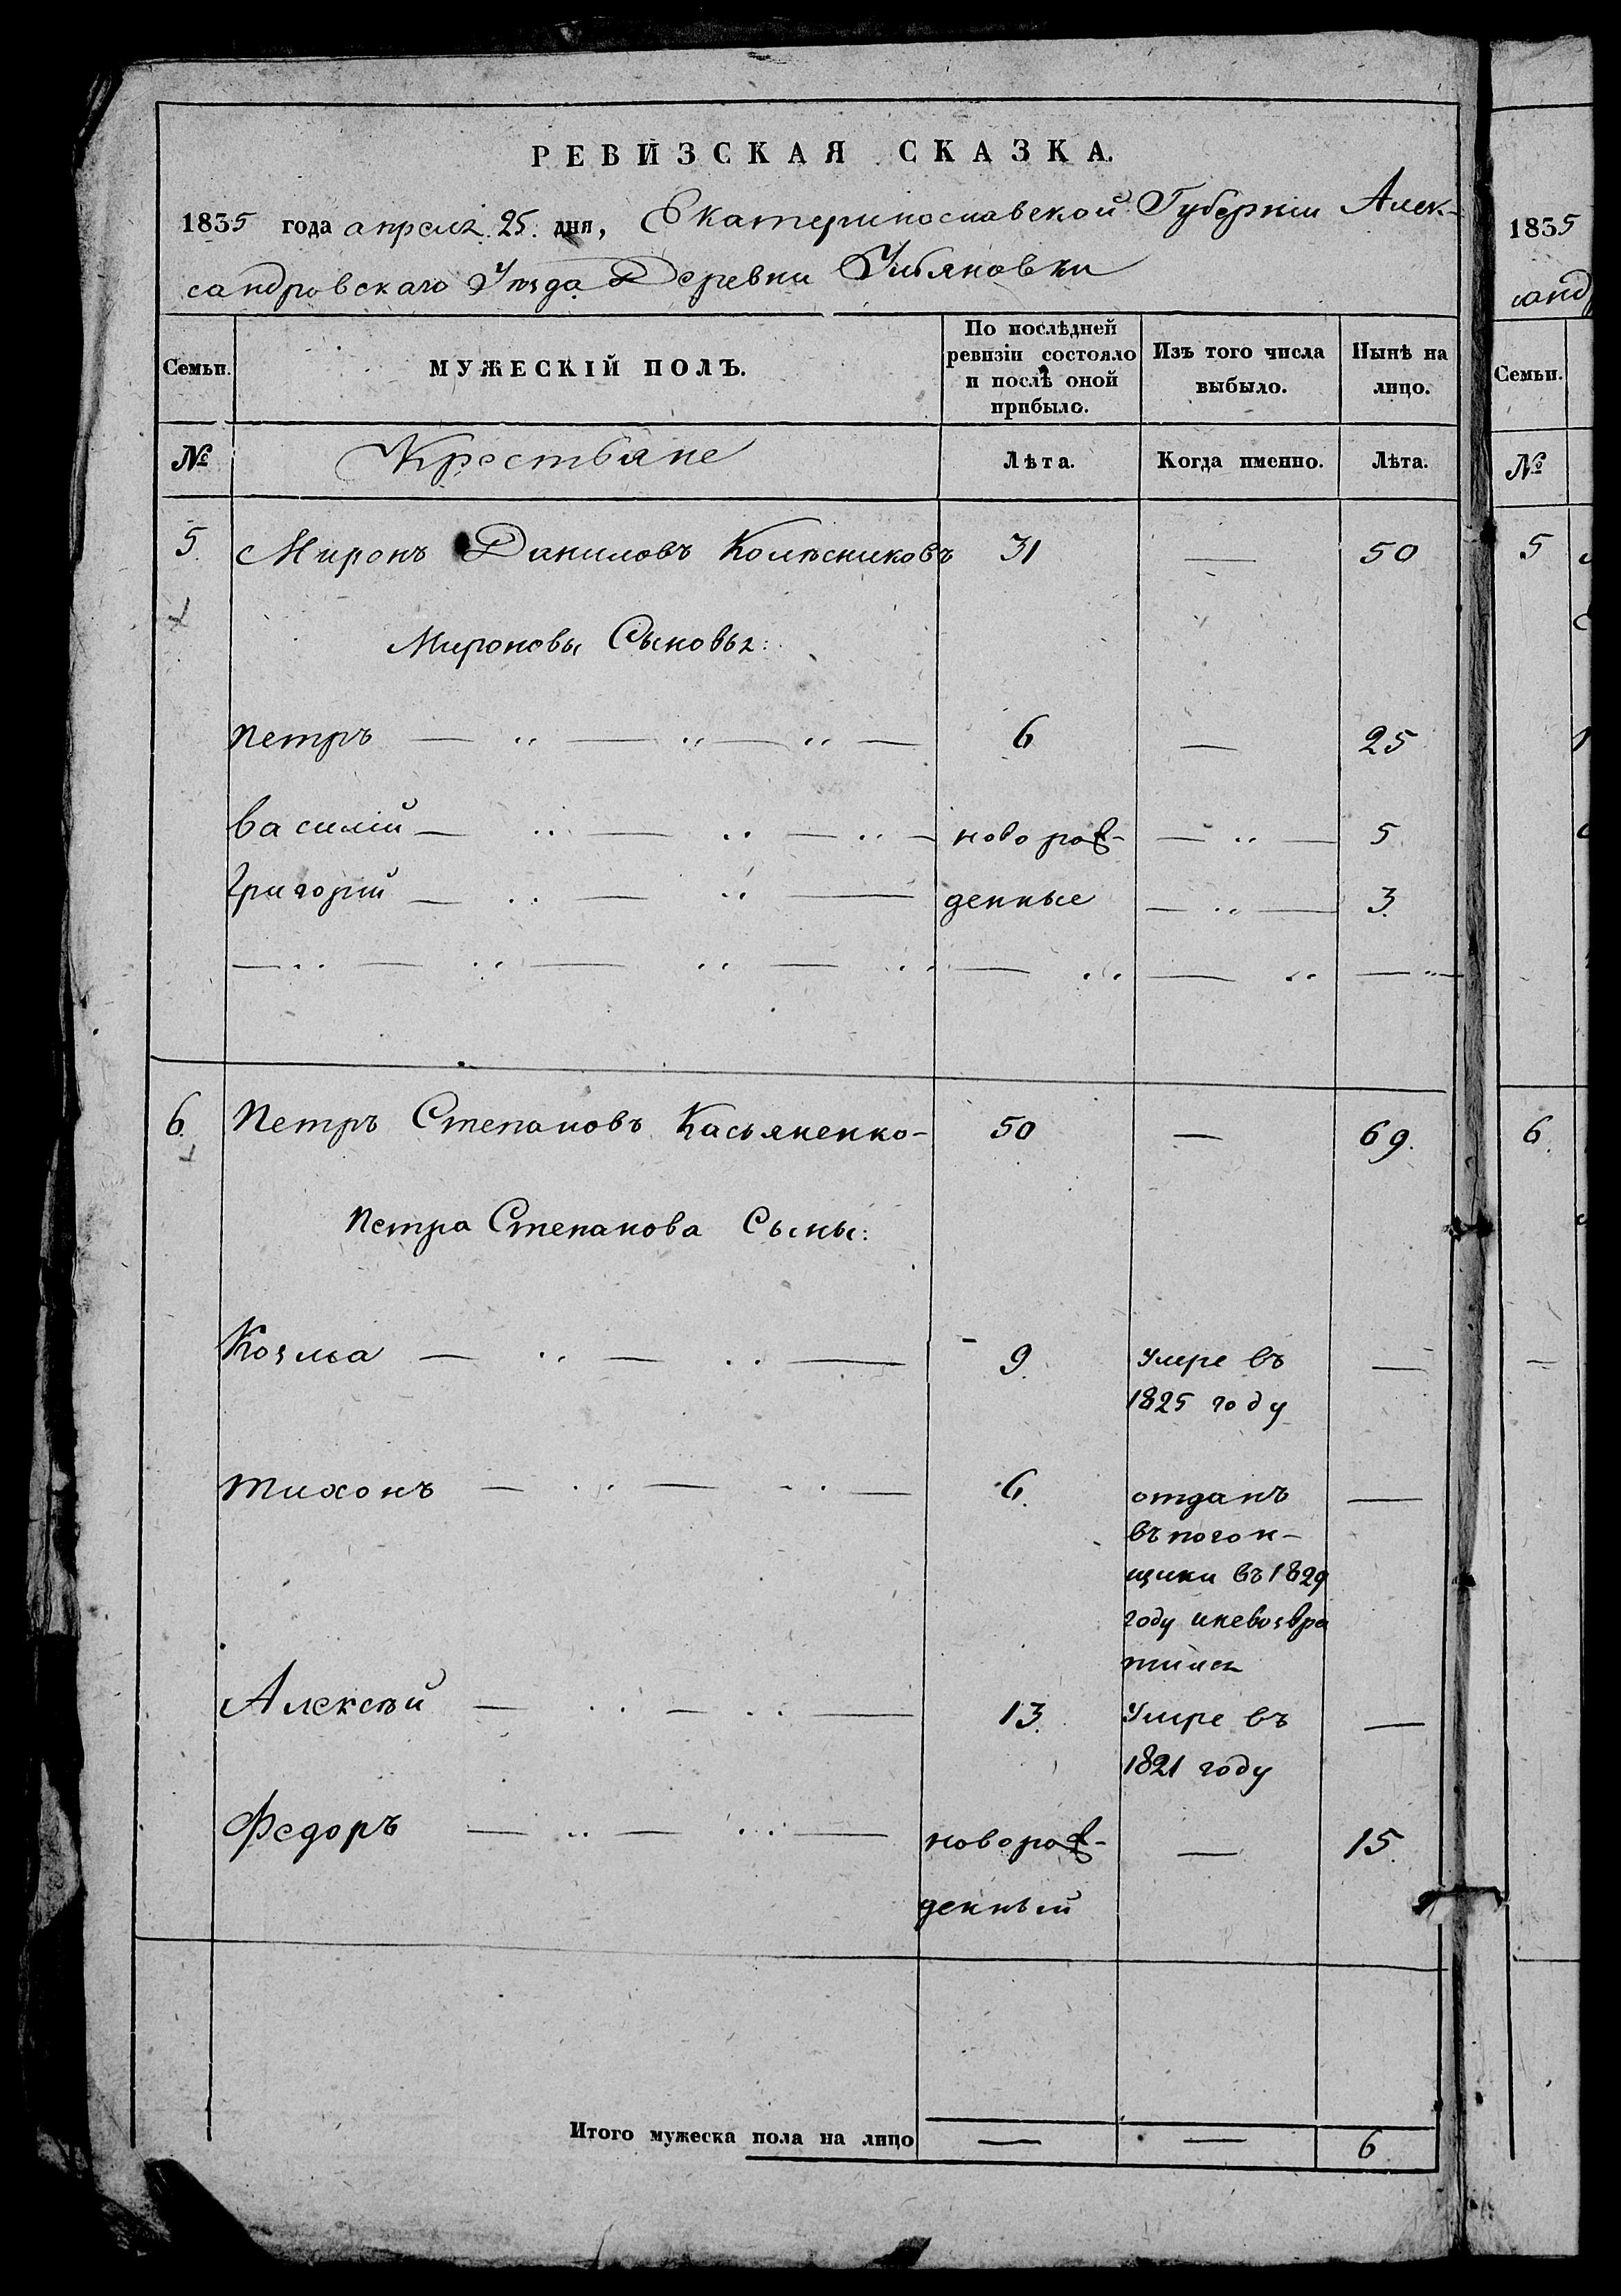 РЕВИЗСКАЯ СКАЗКА.
1835 года апреля 25. дня, Екатеринославской Губернiи Алек-
сандровскаго Уѣзда Деревни
Семьи. МУЖЕСКIЙ ПОЛЪ. По послѣдней ревизiи состояло и послѣ оной прибыло. Изъ того числа выбыло. Нынѣ на лицо.
№ Крестьяне Лѣта. Когда именно. Лѣта.
5. Миронъ Даниловъ Колѣсниковъ 31 — 50
Мироновы Сыновья:
Петръ — " — " — " — 6 — 25
Василiй — " — " — " — новорож- — " — 5
Григорiй — " — " — денные — " — 3.
— " — " — " — " — " — " — " —
6. Петръ Степановъ Касьяненко - 50 — 69.
Петра Степанова Сыны:
Козма — " — " — 9. умре въ —
1825 году
Тихонъ — " — " — 6. отданъ —
въ погон-
щики въ 1829
году и невозвра
тился
Алексѣй — " — " — 13. Умре въ —
1821 году
Федоръ — " — " — новорож- — 15.
денный
Итого мужеска пола на лицо — — 6
1835
санд
Семьи.
№
5
6.